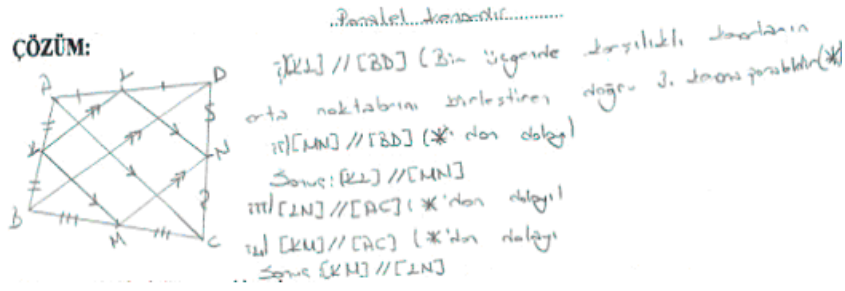 Paralel kenardır
ÇÖZÜM:
i) [KL] // [BD] (Bir üçgende karşılıklı kenarların
orta noktalarını birleştiren doğru 3. kenara paraleldir (*)
ii) [MN] // [BD] (*'dan dolayı)
Sonuç: [KL] // [MN]
iii) [LN] // [AC] (*'dan dolayı)
iv) [KM] // [AC] (*'dan dolayı
Sonuç [KM] // [LN]
A L D
K N
B M C